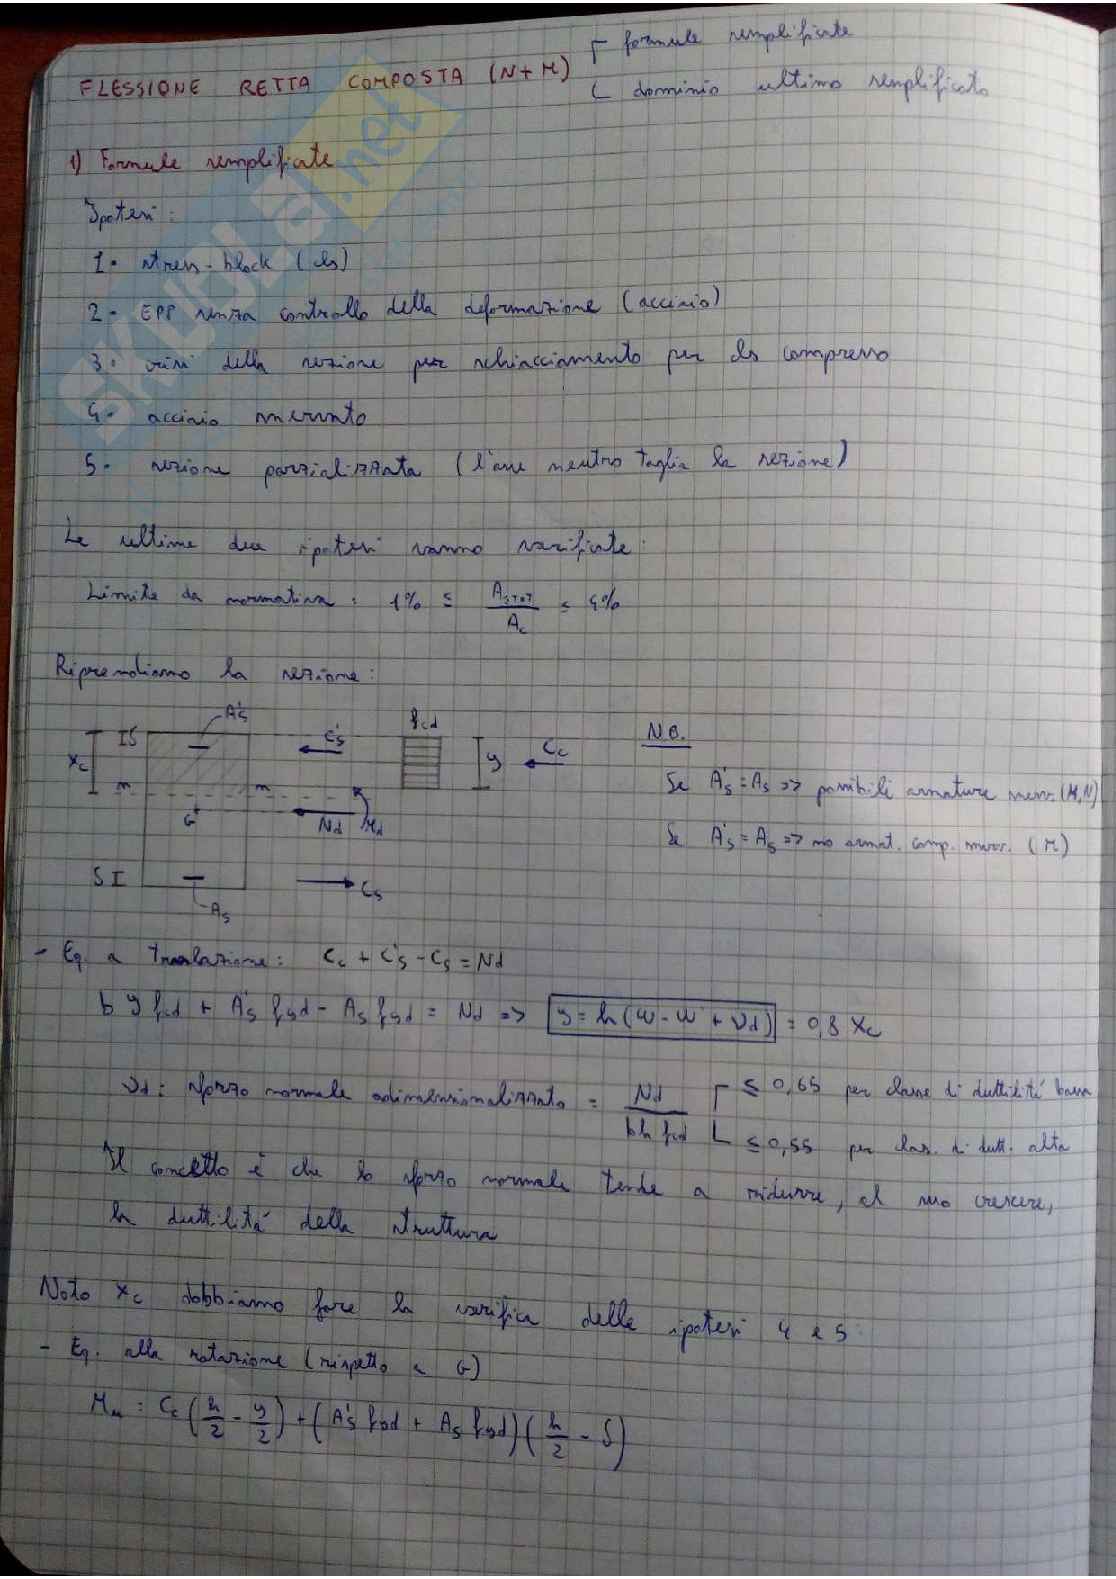 FLESSIONE RETTA COMPOSTA (N+M)
formule semplificate
dominio ultimo semplificato
1) Formule semplificate
Ipotesi:
1. stress-block (cls)
2. EPP senza controllo della deformazione (acciaio)
3. crisi della sezione per schiacciamento per cls compresso
4. acciaio snervato
5. sezione parzializzata (l'asse neutro taglia la sezione)
Le ultime due ipotesi vanno verificate:
Limite da normativa: 1% ≤ As,TOT / Ac ≤ 4%
Riprendiamo la sezione:
A's
IS
xc
n n
G
SI
As
C's
fcd
y
Cc
Nd Md
Cs
N.B.
Se A's = As => possibili armature snerv. (M,N)
Se A's = As => no armat. comp. snerv. (M)
- Eq. a traslazione: Cc + C's - Cs = Nd
b y fcd + A's fyd - As fyd = Nd => y = h (ω - ω' + νd) = 0,8 xc
νd: sforzo normale adimensionalizzato = Nd / bh fcd
≤ 0,65 per classe di duttilitá bassa
≤ 0,55 per clas. di dutt. alta
Il concetto é che lo sforzo normale tende a ridurre, al suo crescere,
la duttilitá della struttura
Noto xc dobbiamo fare la verifica delle ipotesi 4 e 5:
- Eq. alla rotazione (rispetto a G)
Mu: Cc (h/2 - y/2) + (A's fyd + As fyd) (h/2 - δ)
SKUOLA.net